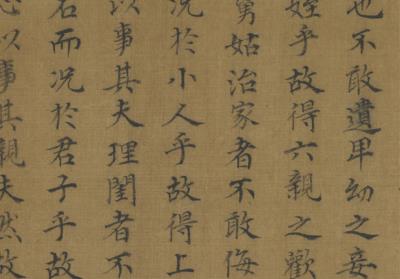 也不敢遺卑幼之妾
姪乎故得六親之歡
舅姑治家者不敢侮
況於小人乎故得上
以事其夫理閨者不
名而況於君子乎故
心以事其親夫然故